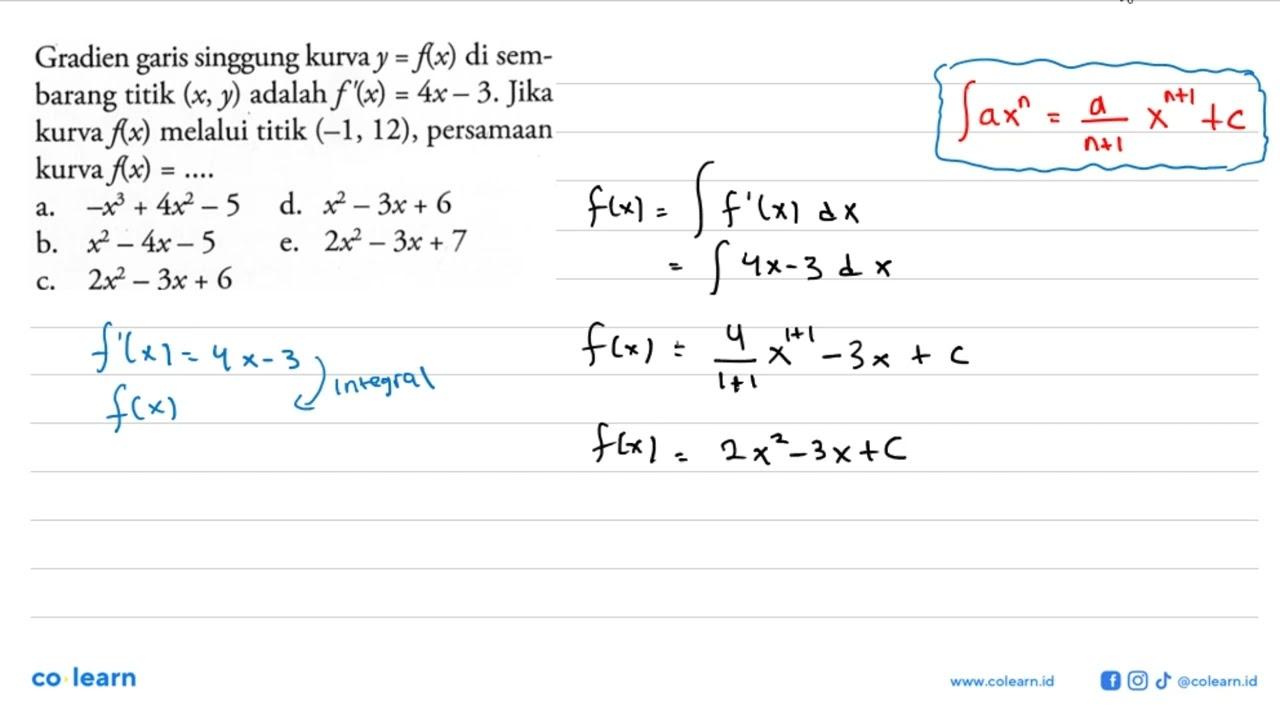 Gradien garis singgung kurva y = f(x) di sem-
barang titik (x, y) adalah f'(x) = 4x – 3. Jika
kurva f(x) melalui titik (–1, 12), persamaan
kurva f(x) = ....
a. –x³ + 4x² – 5 d. x² – 3x + 6
b. x² – 4x – 5 e. 2x² – 3x + 7
c. 2x² – 3x + 6
f'(x) = 4x - 3
f(x)
integral
∫ax^n = a/(n+1) x^(n+1) + c
f(x) = ∫ f'(x) dx
= ∫ 4x - 3 dx
f(x) = 4/(1+1) x^(1+1) - 3x + c
f(x) = 2x² - 3x + C
co·learn
www.colearn.id @colearn.id